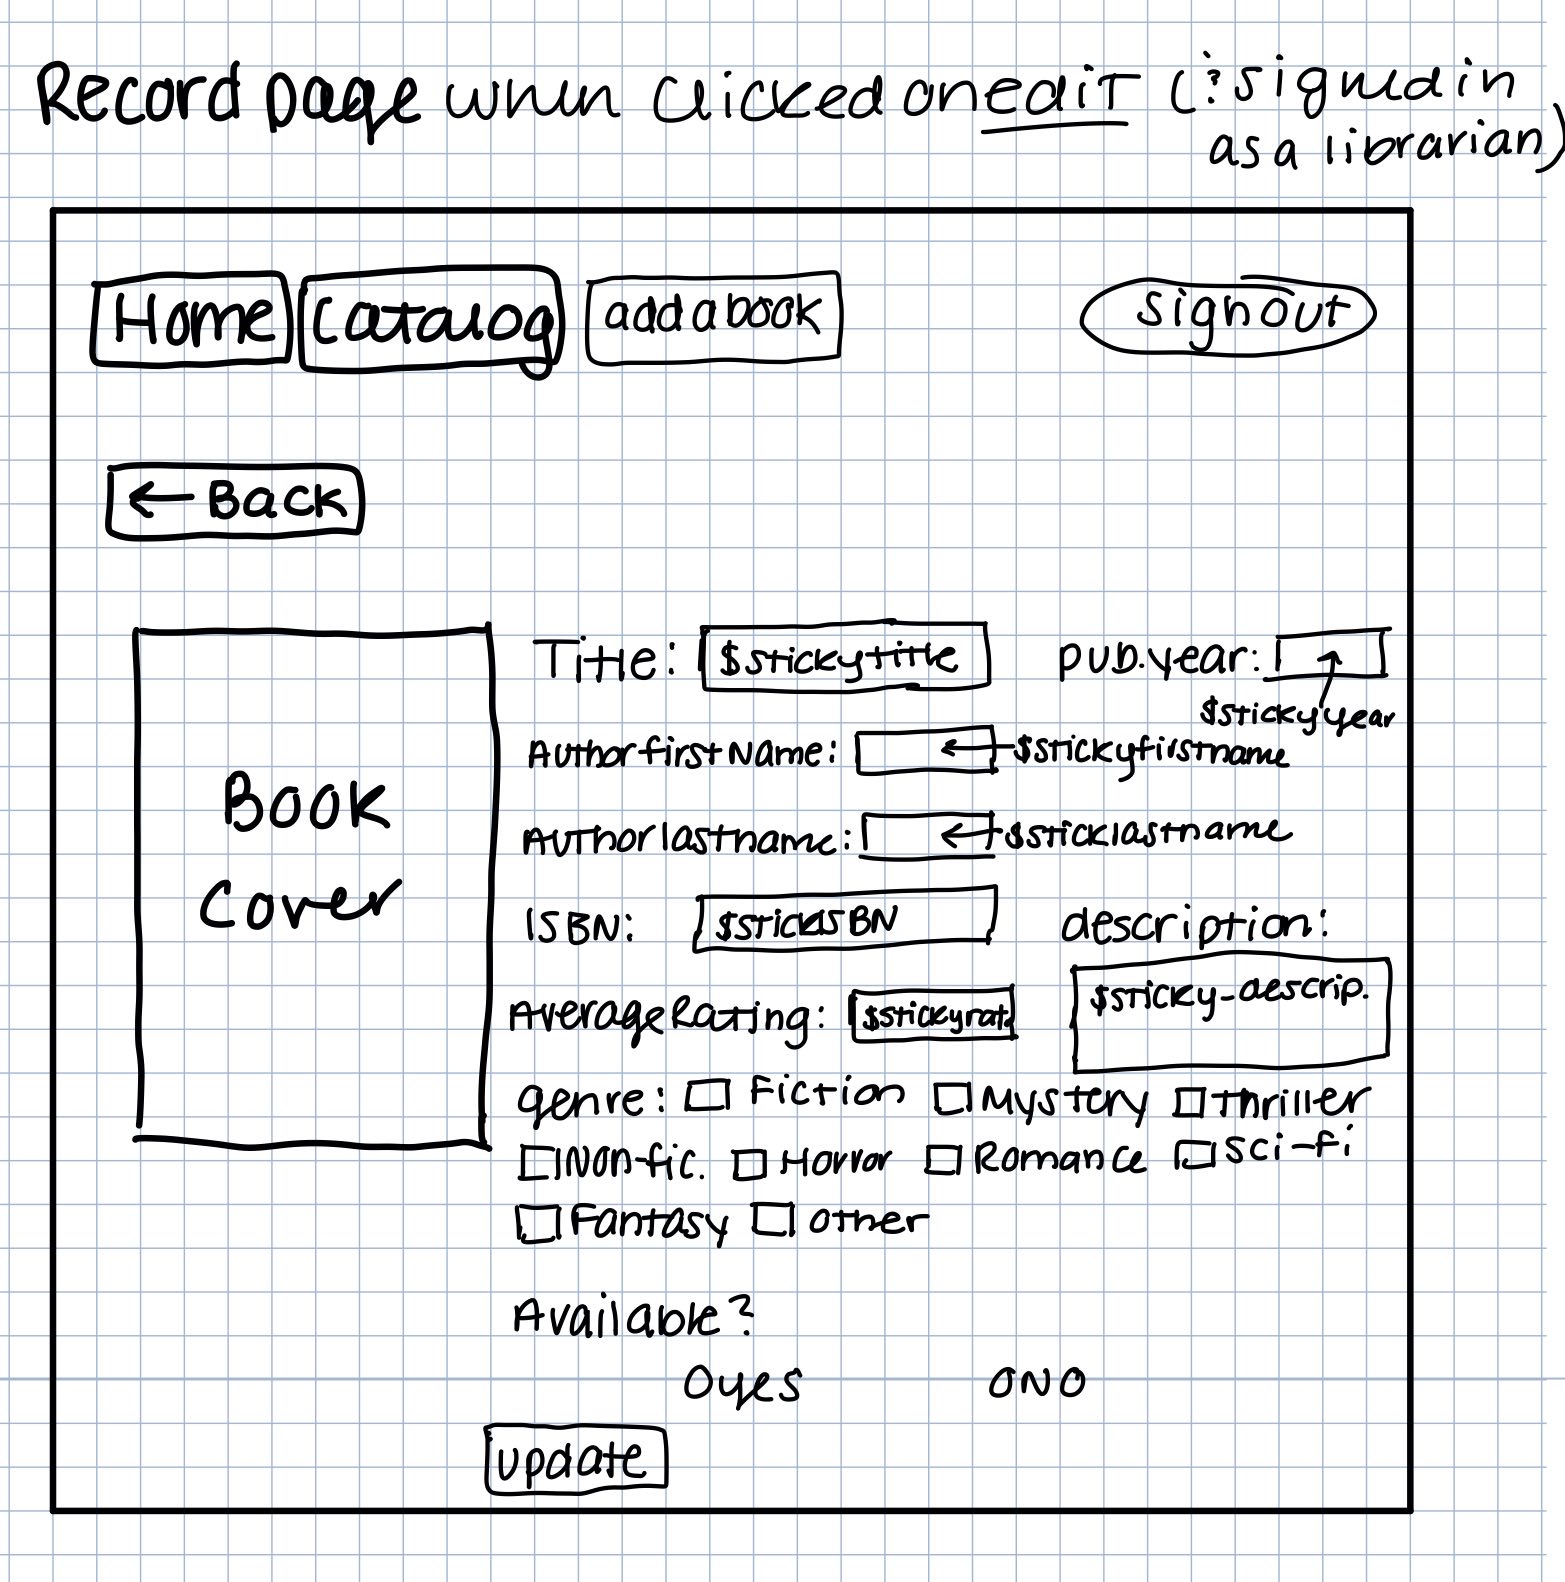 Record page when clicked on edit (? signed in
as a librarian)
Home Catalog add a book sign out
← Back
Book
Cover
Title: $stickytitle pub.year:
$stickyyear
Author first Name: ← $stickyfirstname
Author last name: ← $sticklastname
ISBN: $stickISBN description:
$sticky-descrip.
Average Rating: $stickyrat
genre: Fiction Mystery Thriller
Non-fic. Horror Romance Sci-fi
Fantasy other
Available?
yes NO
update